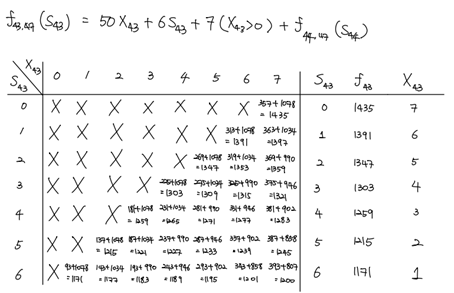 f43,44 (S43) = 50X43 + 6S43 + 7(X43>0) + f44,47 (S44)
X43
S43 0 1 2 3 4 5 6 7 S43 f43 X43
0 X X X X X X X 357+1078 0 1435 7
= 1435
1 X X X X X X 313+1078 363+1034 1 1391 6
= 1391 =1397
2 X X X X X 269+1078 319+1034 369+990 2 1347 5
=1347 =1353 =1359
3 X X X X 225+1078 275+1034 325+990 375+946 3 1303 4
=1303 =1309 =1315 =1321
4 X X X 181+1078 231+1034 281+990 331+946 381+902 4 1259 3
=1259 =1265 =1271 =1277 =1283
5 X X 137+1078 187+1034 237+990 287+946 337+902 387+858 5 1215 2
=1215 =1221 =1227 =1233 =1239 =1245
6 X 93+1078 143+1034 193+990 243+946 293+902 343+858 393+807 6 1171 1
=1171 =1177 =1183 =1189 =1195 =1201 =1200